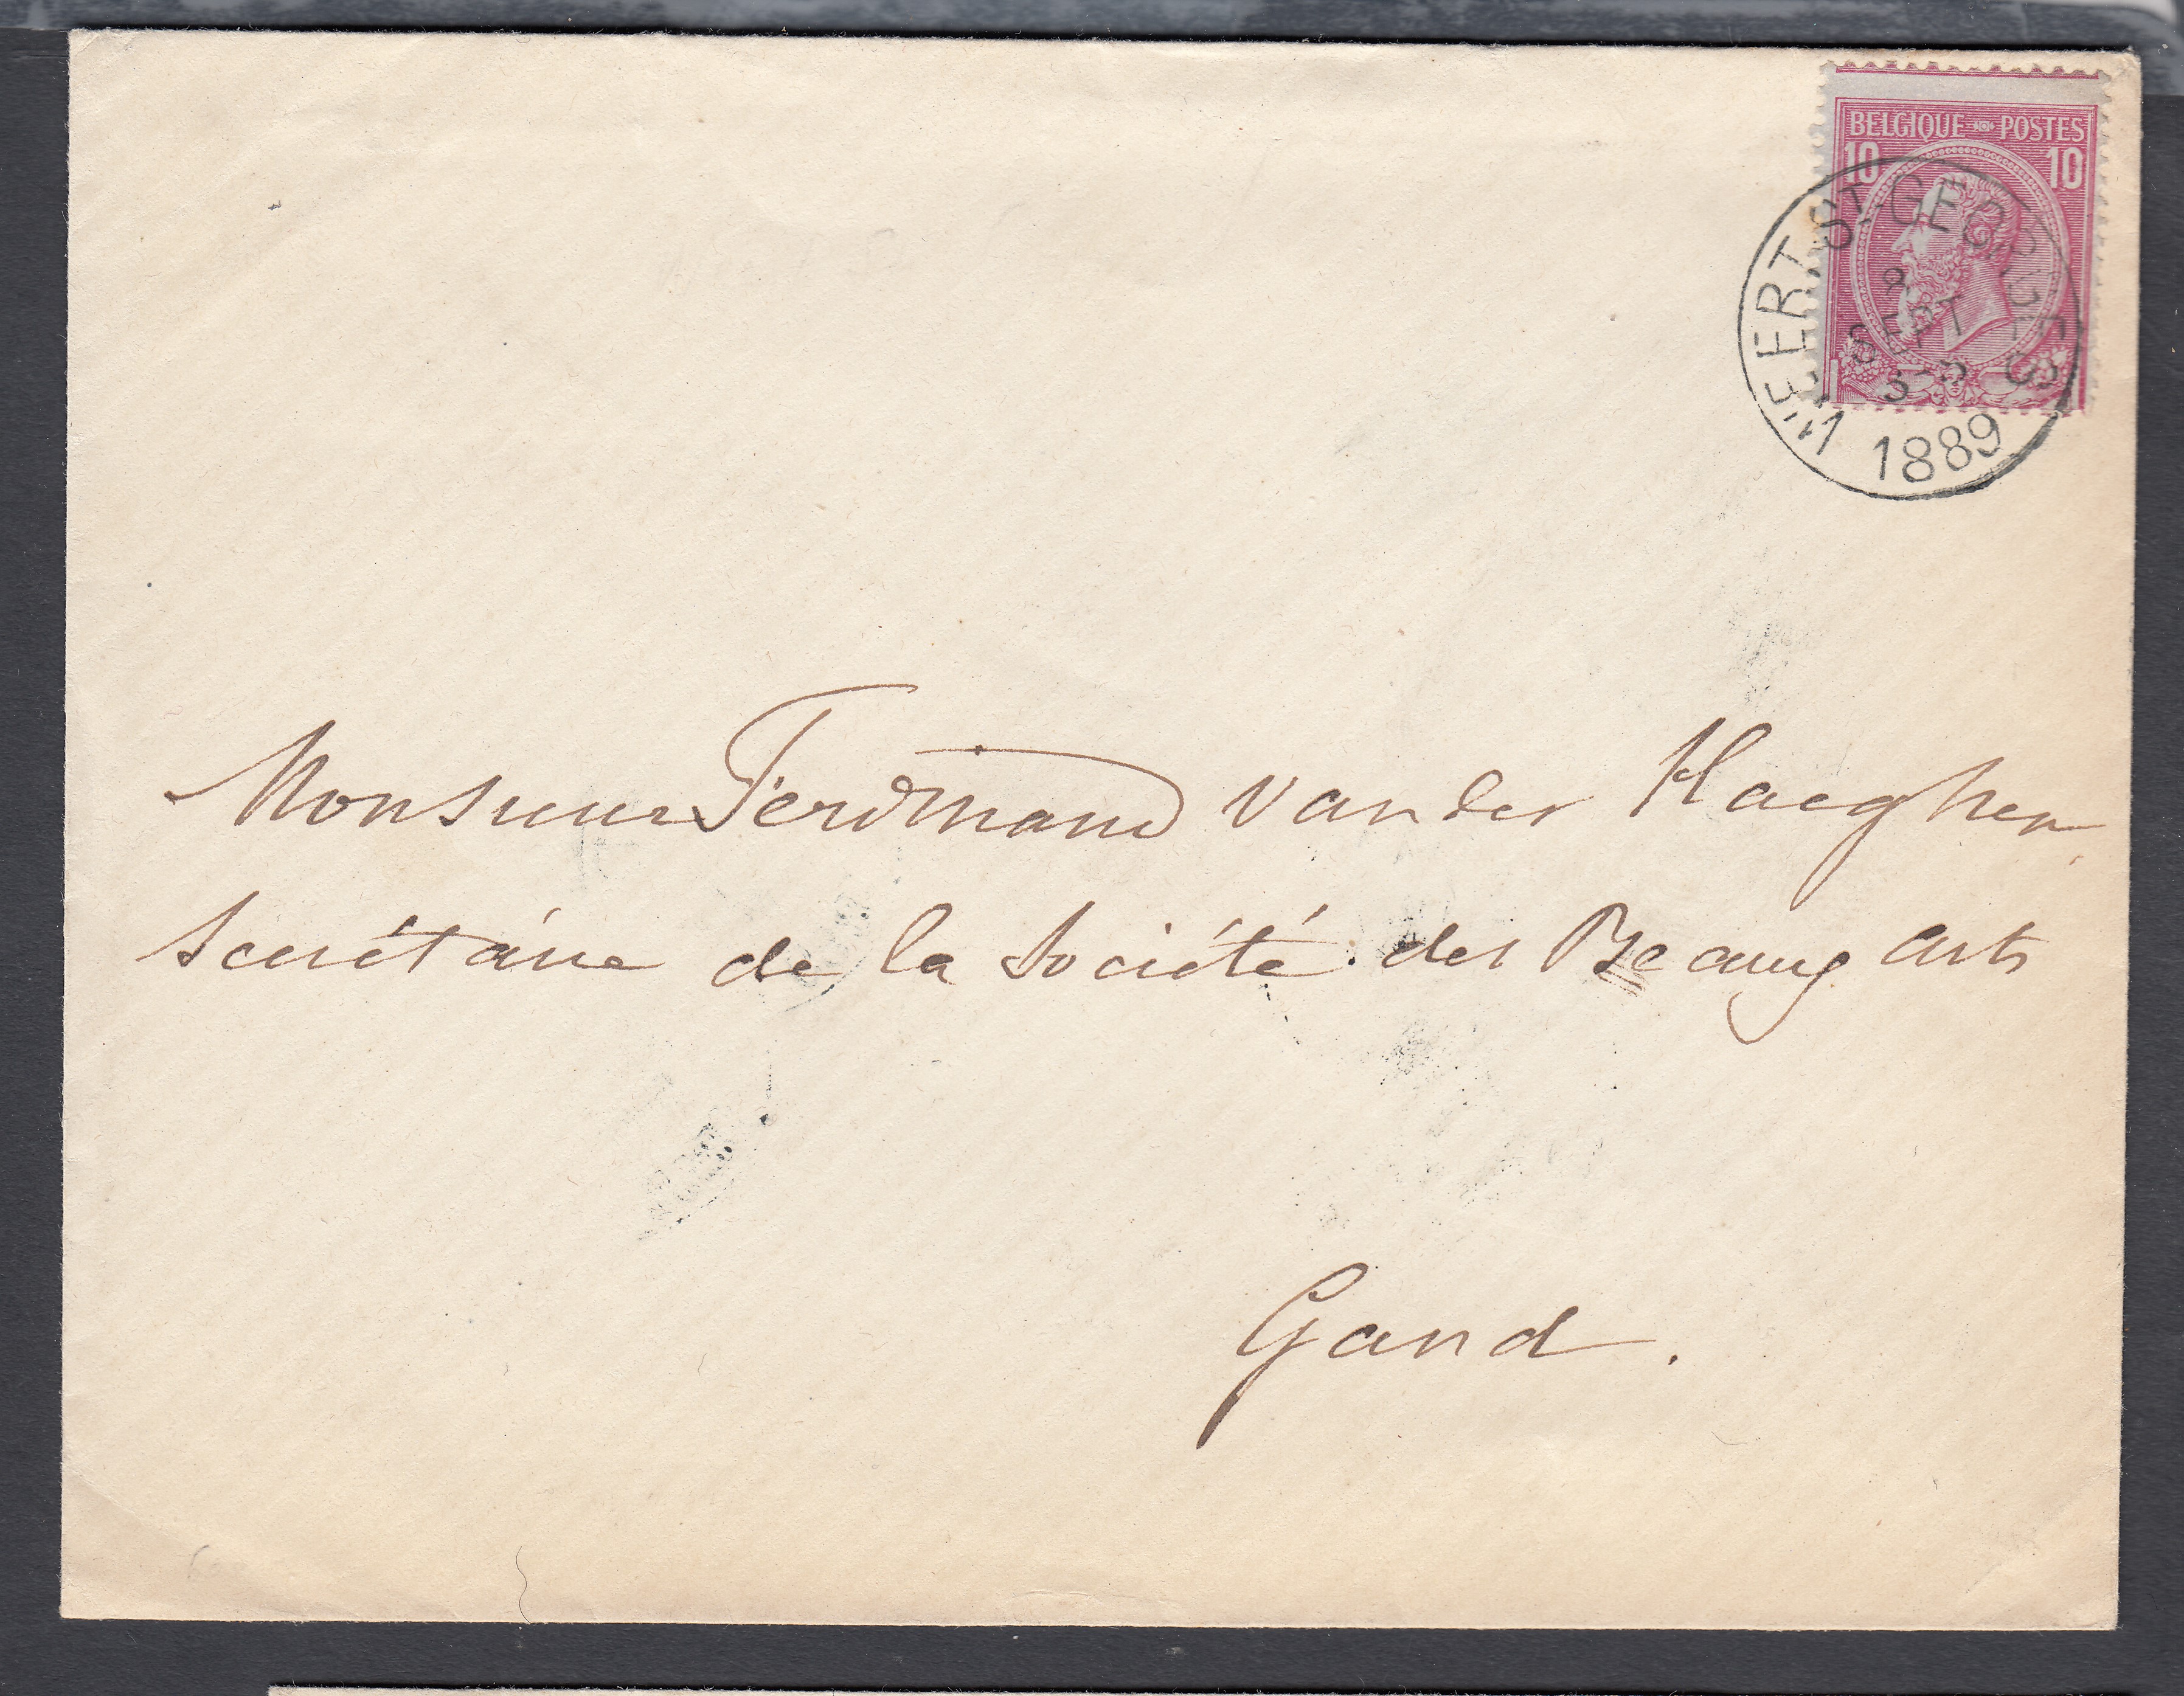 BELGIQUE POSTES
10 10
WEERT-ST-GEORGES
8
SEPT
3-S
1889
Monsieur Ferdinand vander Haeghen
secrétaire de la société des Beaux arts
Gand.